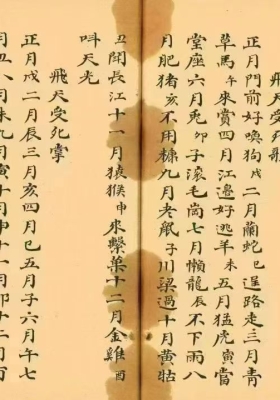 正月門前好喚狗戌二月蘭蛇巳進路走三月青
草馬午來嘗四月江邊好逃羊未五月猛虎寅當
堂座六月兎卯子滾毛尚七月懶龍辰不下雨八
月肥猪亥不用糠九月老鼠子川梁過十月黄牯
丑開長江十一月猿猴申來繫菓十二月金雞酉
呌天光
飛天受死掌
正月戌二月辰三月亥四月巳五月子六月午七
月丑八月未九月寅十月申十一月卯十二月酉